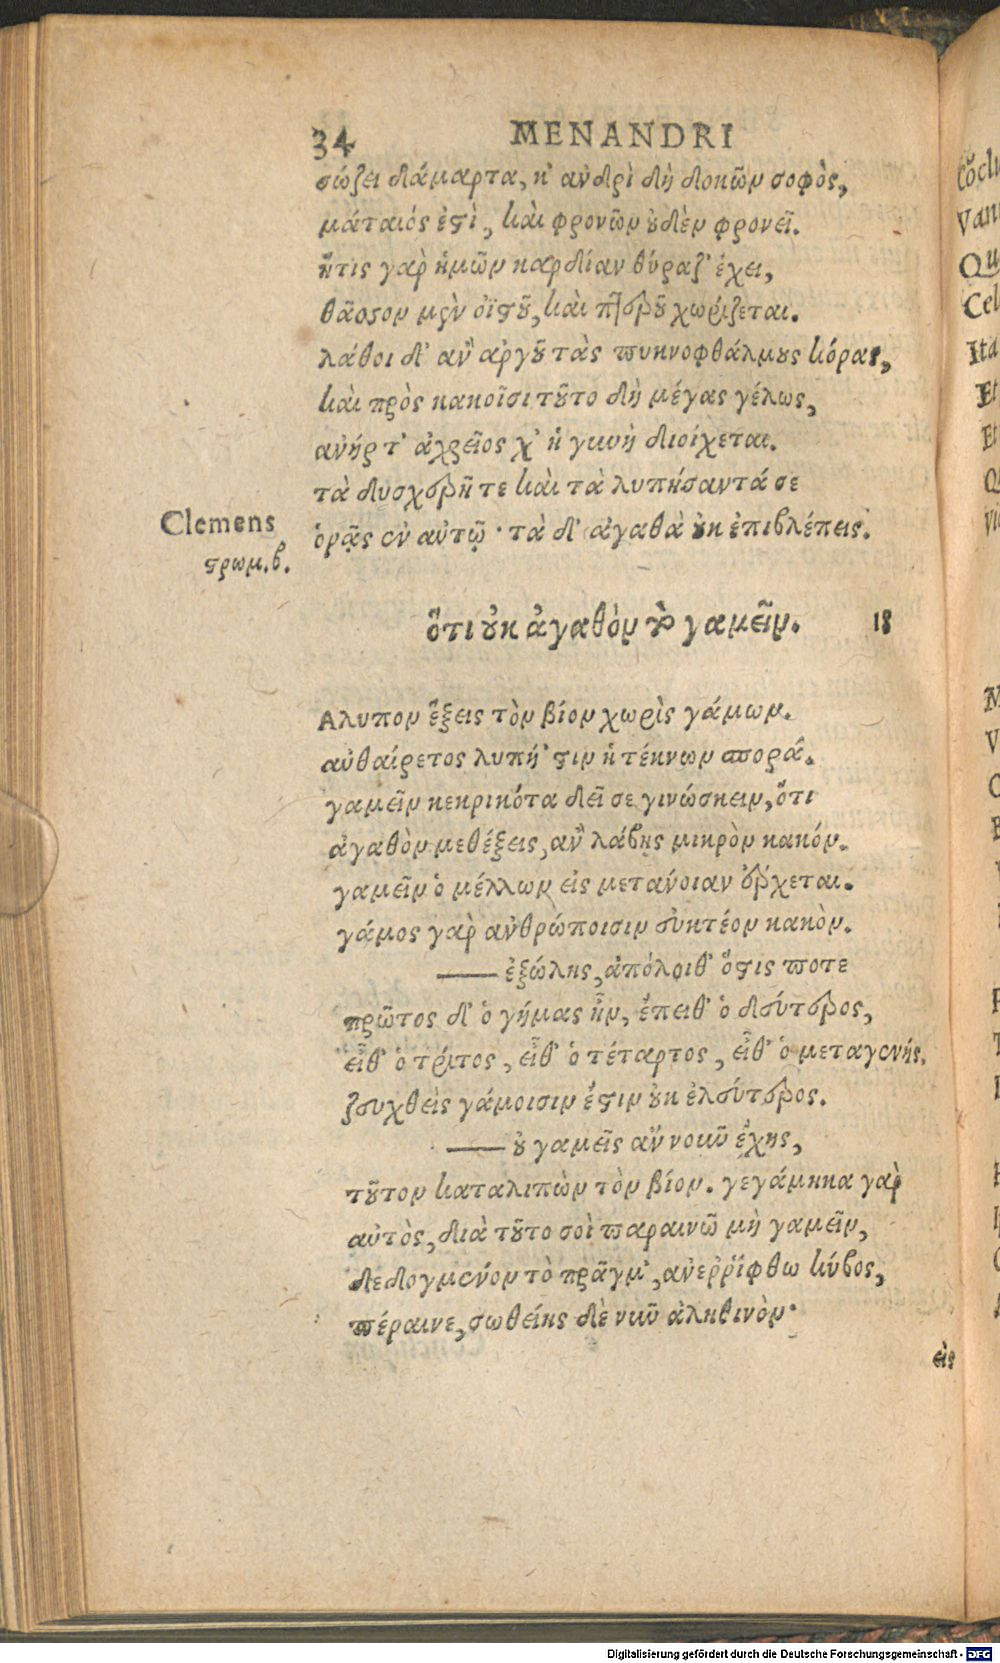 34 MENANDRI
σώζει δάμαρτα, κ' ἀνδρὶ δὴ δοκῶν σοφὸς,
μάταιός ἐστὶ, καὶ φρονῶν οὐδὲν φρονεῖ.
ἥτις γὰρ ἡμῶν καρδίαν θύραζ' ἔχει,
θᾶσσον μὲν οἰστοῦ, καὶ πτεροῦ χωρίζεται.
λάθοι δ' ἂν ἀργοῦ τὰς πυκνοφθάλμους κόρας,
καὶ πρὸς κακοῖσι τοῦτο δὴ μέγας γέλως,
ἀνήρ τ' ἀχρεῖος χ' ἡ γυνὴ διοίχεται.
τὰ δυσχερῆ τε καὶ τὰ λυπήσαντά σε
Clemens
ὁρᾷς ἐν αὐτῷ· τὰ δ' ἀγαθὰ οὐκ ἐπιβλέπεις.
στρωμ. β.
ὅτι οὐκ ἀγαθὸν τὸ γαμεῖν. 18
Αλυπον ἕξεις τὸν βίον χωρὶς γάμων.
αὐθαίρετος λυπή 'στιν ἡ τέκνων σπορά.
γαμεῖν κεκρικότα δεῖ σε γινώσκειν, ὅτι
ἀγαθὸν μεθέξεις, ἂν λάβῃς μικρὸν κακόν.
γαμεῖν ὁ μέλλων εἰς μετάνοιαν ἔρχεται.
γάμος γὰρ ἀνθρώποισιν εὐκτέον κακὸν.
—— ἐξώλης, ἀπόλοιθ' ὅστις ποτε
πρῶτος δ' ὁ γήμας ἦν, ἔπειθ' ὁ δεύτερος,
εἶθ' ὁ τρίτος, εἶθ' ὁ τέταρτος, εἶθ' ὁ μεταγενής.
ζευχθεὶς γάμοισιν ἔστιν οὐκ ἐλεύτερος.
—— οὐ γαμεῖς ἂν νοῦν ἔχῃς,
τοῦτον καταλιπὼν τὸν βίον. γεγάμηκα γὰρ
αὐτὸς, διὰ τοῦτο σοὶ παραινῶ μὴ γαμεῖν,
δεδογμένον τὸ πρᾶγμ', ἀνεῤῥίφθω κύβος,
πέραινε, σωθείης δὲ νῦν ἀληθινὸν·
εἰς